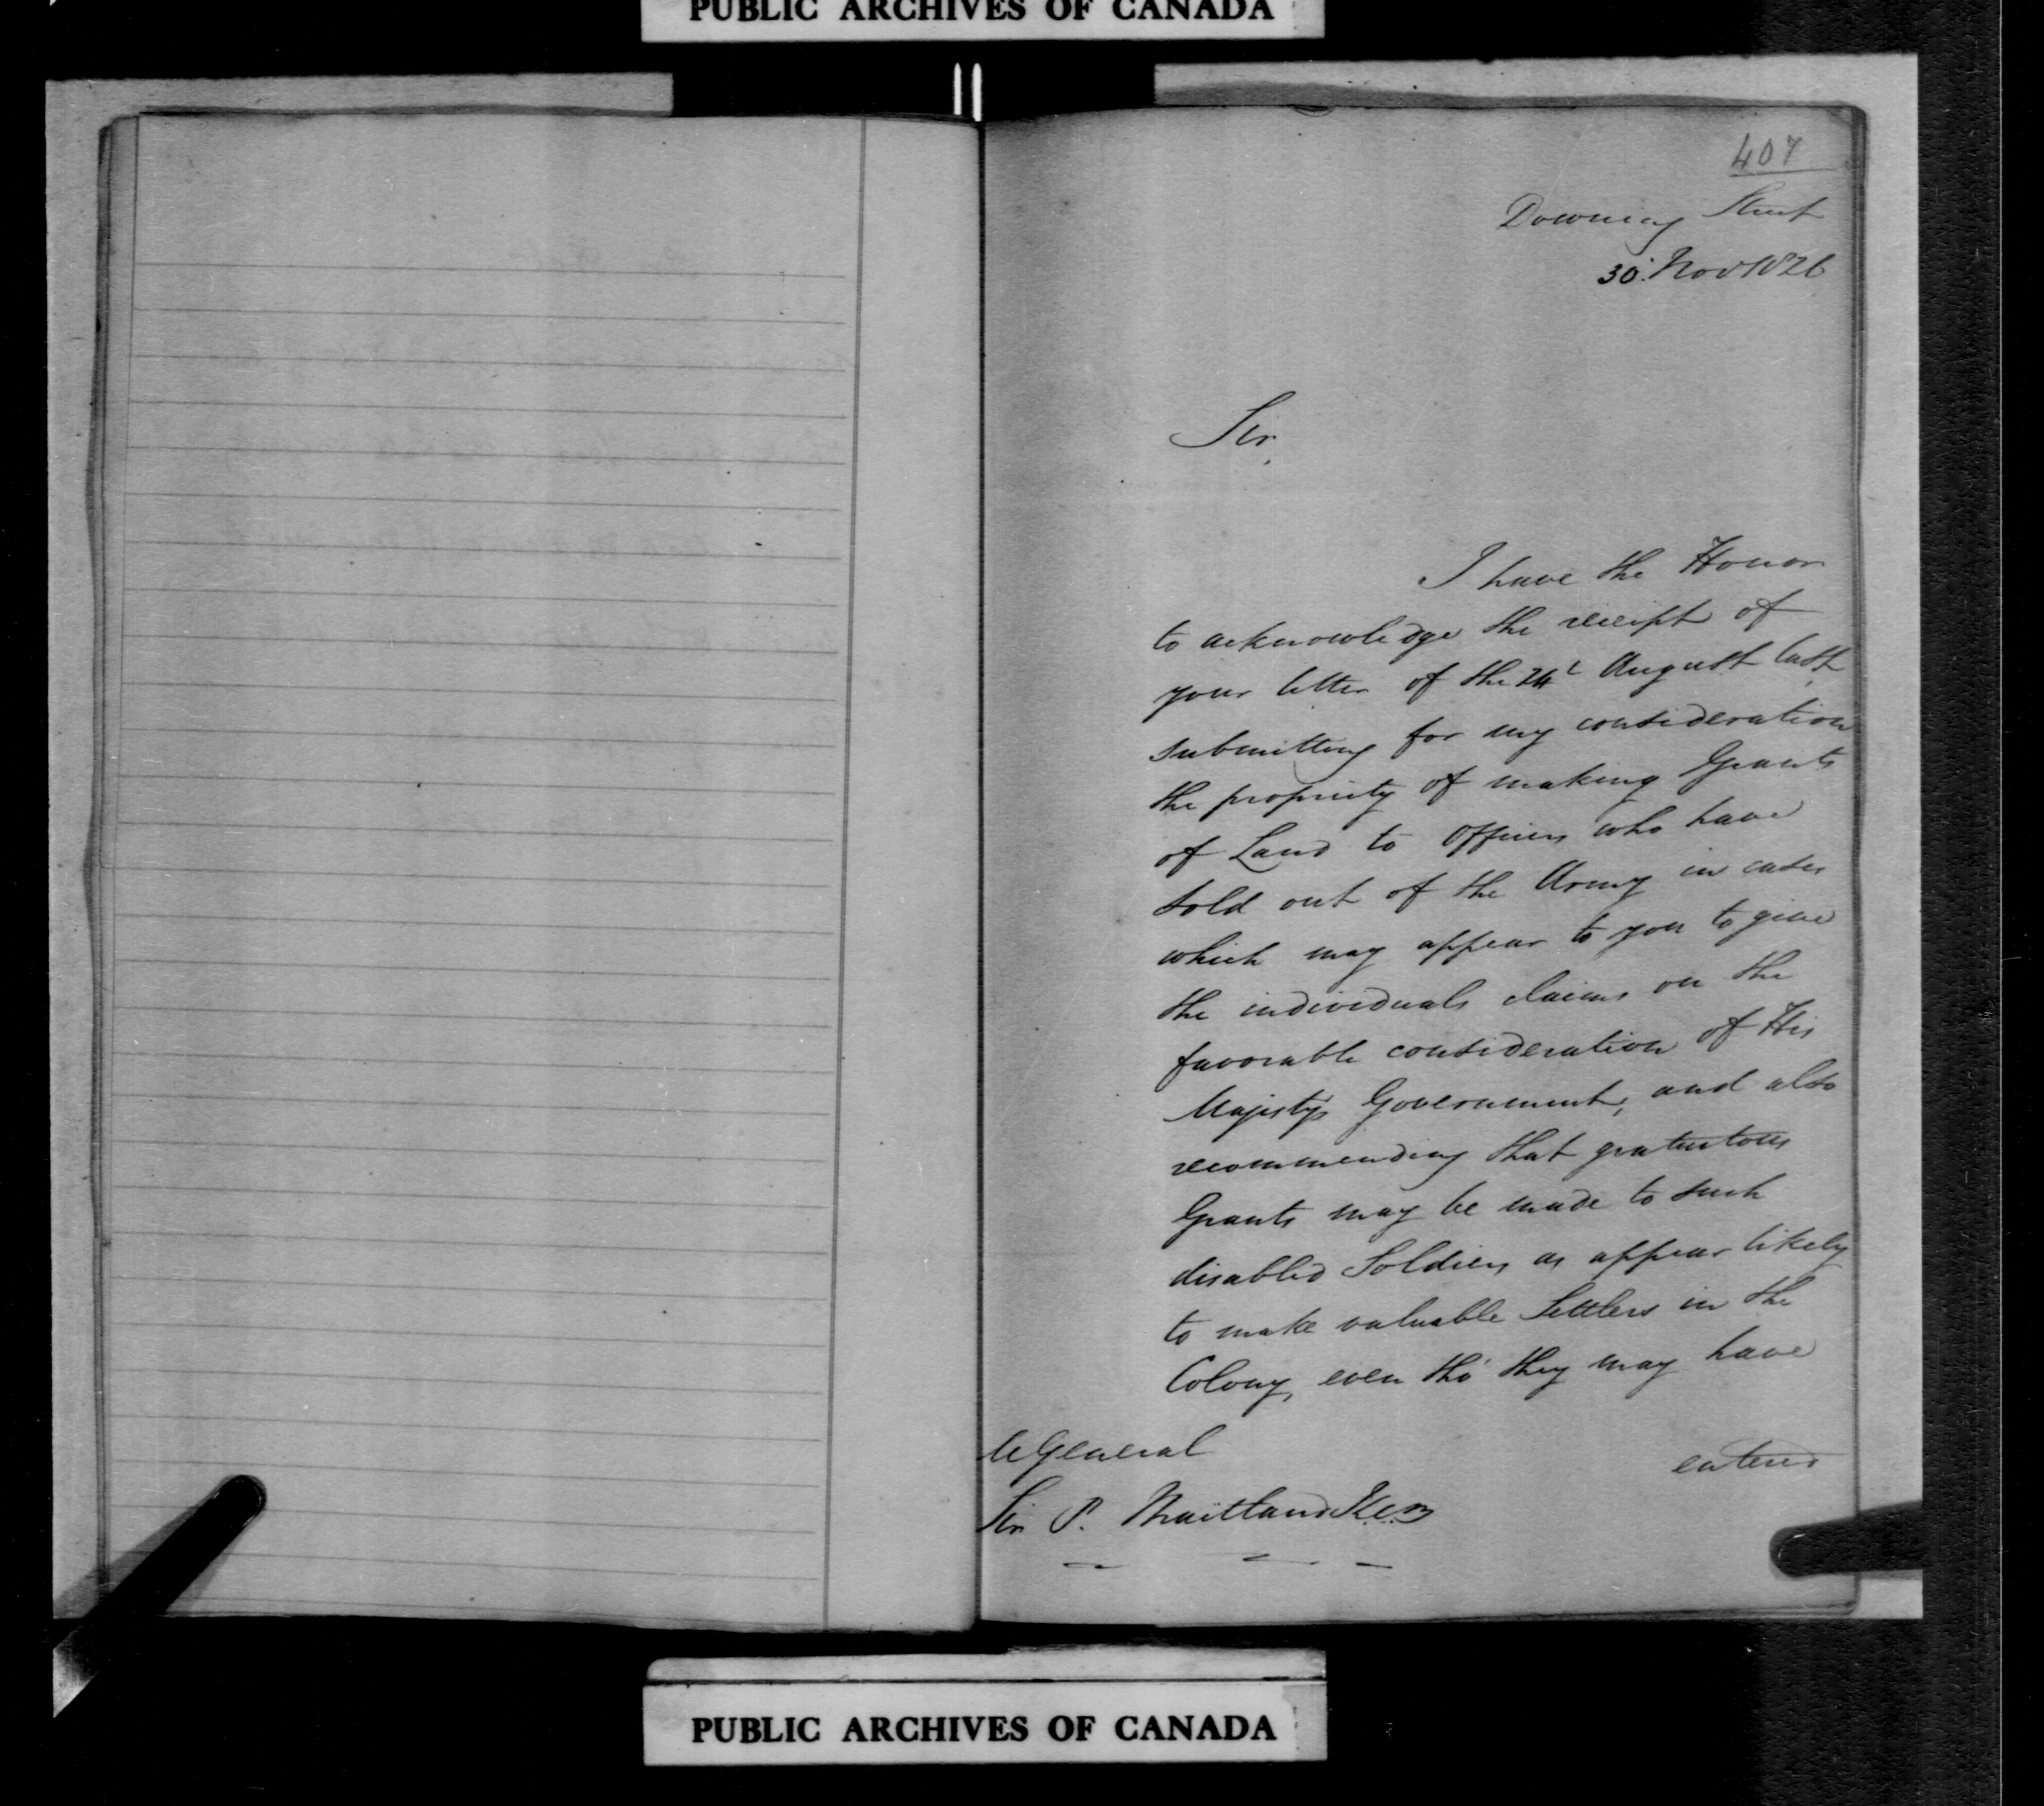 PUBLIC ARCHIVES OF CANADA
407
Downing Street
30. Nov 1826
Sir,
I have the Honor
to acknowledge the receipt of
your letter of the 24th August last,
submitting for my consideration
the propriety of making Grants
of Land to Officers who have
sold out of the Army in cases
which may appear to you to give
the individuals claims on the
favorable consideration of His
Majesty's Government, and also
recommending that gratuitous
Grants may be made to such
disabled Soldiers as appear likely
to make valuable Settlers in the
Colony, even tho' they may have
entered
M General
Sir P. Maitland KCB
PUBLIC ARCHIVES OF CANADA